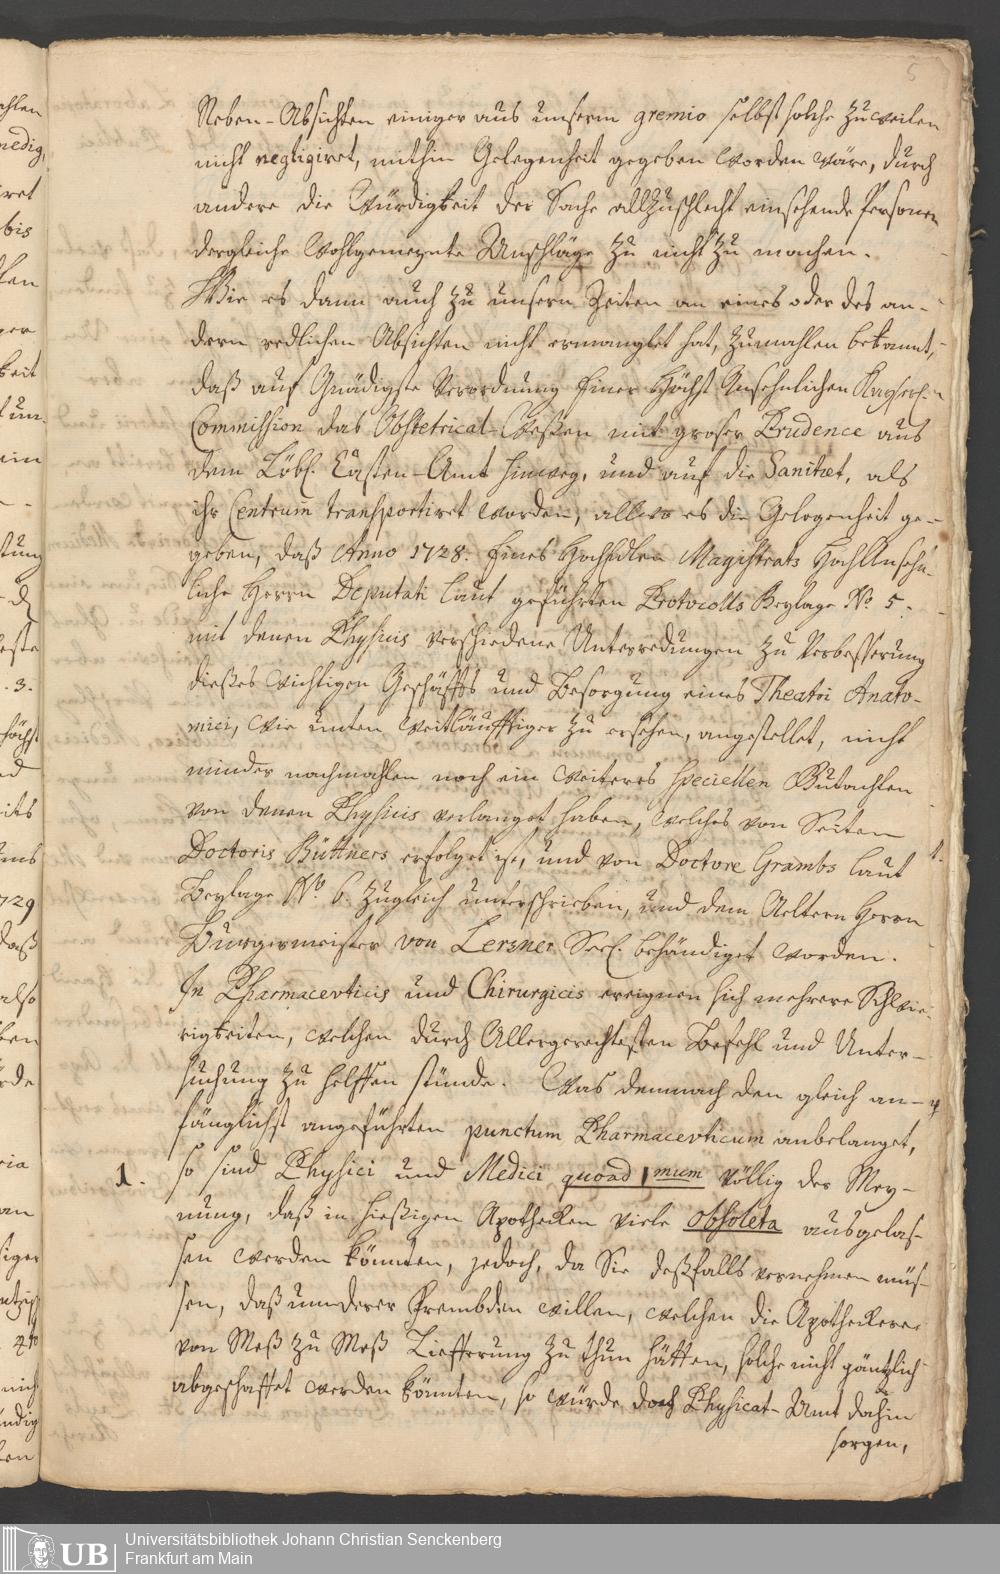 5
Neben-Absichten einiger aus unserm gremio selbst solche zuweilen
nicht negligiret, mithin Gelegenheit gegeben worden wäre, durch
andere die Würdigkeit der Sache allzuschlecht einsehende Personen
dergleiche wohlgemeynte Anschläge zu nicht zu machen.
Wie es dann auch zu unsern Zeiten an eines oder des an-
dern redlichen Absichten nicht ermanglet hat, zumahlen bekannt,
daß auf Gnädigste Verordnung Einer Höchst Ansehnlichen Kayserl.
Commission das Obstetrical-Weßen mit groser Prudence aus
dem Löbl. Casten-Amt hinweg, und auf die Sanitæt, als
ihr Centrum transportiret worden, allwo es die Gelegenheit ge-
geben, daß Anno 1728. Eines HochEdlen Magistrats HochAnsehn-
liche Herrn Deputati laut geführten Protocolls Beylage No. 5.
mit denen Physicis verschiedene Unterredungen zu Verbesserung
dießes wichtigen Geschäffts und Besorgung eines Theatri Anato-
mici, wie unten weitläufftiger zu ersehen, angestellet, nicht
minder nachmahlen noch ein weiteres speciellen Gutachten
von denen Physicis verlanget haben, welches von Seiten
Doctoris Büttners erfolget ist, und von Doctore Grambs laut
Beylage No. 6. zugleich unterschrieben, und dem Aeltern Herrn
Burgermeister von Lersner Seel. behändiget worden.
In Pharmacevticis und Chirurgicis ereignen sich mehrere Schwie-
rigkeiten, welchen durch Allergerechtesten Befehl und Unter-
suchung zu helffen stünde. Was demnach den gleich an-
fänglichst angeführten punctum Pharmacevticum anbelanget,
1. so sind Physici und Medici quoad 1mum völlig der Mey-
nung, daß in hießigen Apothecken viele obsoleta ausgelas-
sen werden könnten, jedoch, da Sie deßfalls vernehmen müs-
sen, daß um derer Frembden willen, welchen die Apothecker
von Meß zu Meß Liefferung zu thun hätten, solche nicht gäntzlich
abgeschaffet werden könnten, so würde doch Physicat-Amt dahin
sorgen,
UB
Universitätsbibliothek Johann Christian Senckenberg
Frankfurt am Main